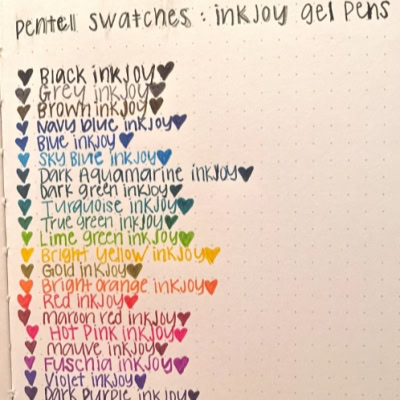 pentell swatches: inkjoy gel pens
Black inkJoy
Grey inkJoy
Brown inkJoy
Navy blue inkJoy
Blue inkJoy
Sky Blue inkJoy
Dark Aquamarine inkJoy
Dark green inkJoy
Turquoise inkJoy
True green inkJoy
Lime green inkJoy
Bright yellow inkJoy
Gold inkJoy
Bright orange inkJoy
Red inkJoy
maroon red inkJoy
Hot Pink inkJoy
mauve inkJoy
Fuschia inkJoy
Violet inkJoy
Dark Purple inkJoy